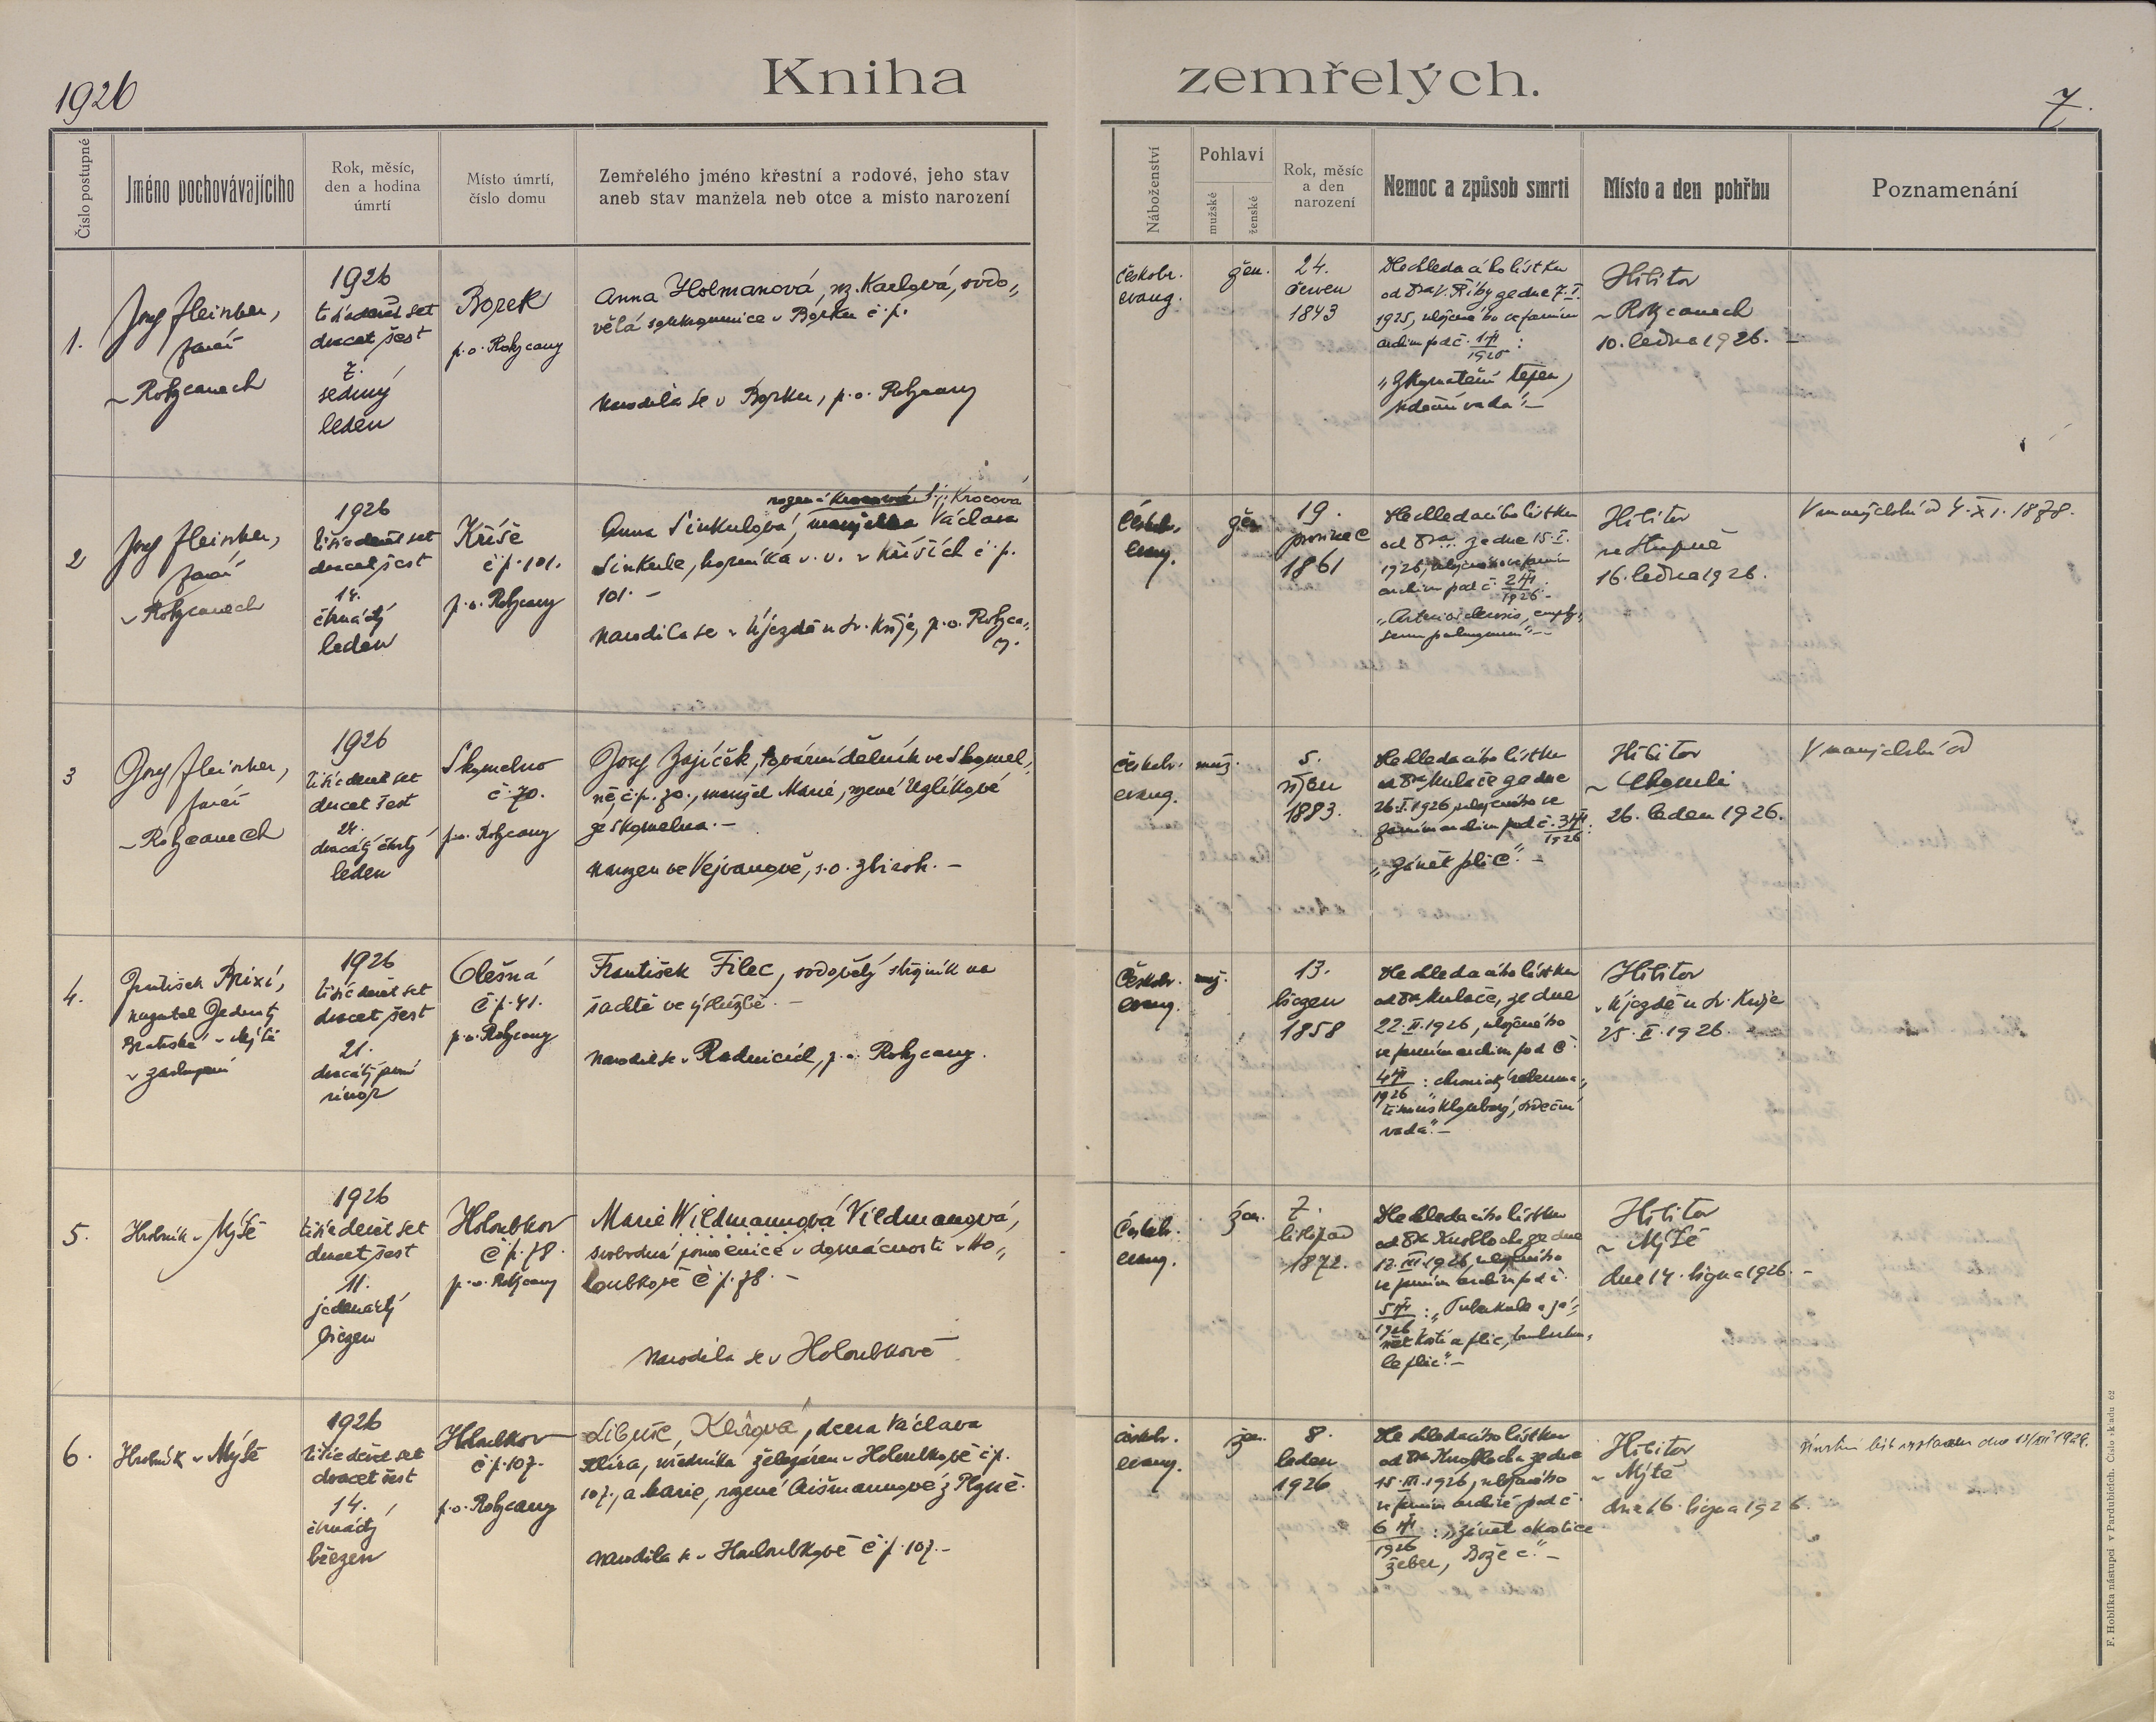 1926
Kniha zemřelých.
7.
Číslo postupné
Jméno pochovávajícího
Rok, měsíc,
den a hodina
úmrtí
Místo úmrtí,
číslo domu
Zemřelého jméno křestní a rodové, jeho stav
aneb stav manžela neb otce a místo narození
Náboženství
Pohlaví
mužské
ženské
Rok, měsíc
a den
narození
Nemoc a způsob smrti
Místo a den pohřbu
Poznamenání
1.
Josef
farář
v Rokycanech
1926
tisíc devět set
dvacet šest
7.
sedmý
leden
Borek
p. o. Rokycany
Anna Holmanová, roz. Karlová, vdo„
vělá soukromnice v Borku č. p.
Narodila se v Borku, p. o. Rokycany
českobr.
evang.
žen.
24.
červen
1843
Dle ohledacího lístku
od Dra V. Říhy ze dne 7. I.
1925, uloženého ve farním
archivu pod č. 1
1926 :
„Zkornatění tepen,
srdeční vada“. –
Hřbitov
v Rokycanech
10. ledna 1926. –
2
Josef
farář
v Rokycanech
1926
tisíc devět set
dvacet šest
14.
čtrnáctý
leden
Kříše
č. p. 101.
p. o. Rokycany
rozená Krocová
Anna Sinkulová, manželka Václava
Sinkule, horníka v. v. v Kříších č. p.
101. –
Narodila se v Újezdě u Sv. Kříže, p. o. Rokyca„
ny.
Českobr.
evang.
žen.
19.
prosinec
1861
Dle ohledacího lístku
od Dra ze dne 15. I.
1926, uloženého ve farním
archivu pod č. 2
1926 :
„Arteriosclerosis, emphy„
sema pulmonum“. –
Hřbitov
ve Stupně
16. ledna 1926.
V manželství od 4. XI. 1878.
3
Josef
farář
v Rokycanech
1926
tisíc devět set
dvacet šest
24.
dvacátý čtvrtý
leden
Skomelno
č. 70.
p. o. Rokycany
Josef Zajíček, tovární dělník ve Skomel„
ně, č. p. 70., manžel Marie, rozené Uzlíkové
ze Skomelna. –
Narozen ve Vejvanově, s. o. Zbiroh. –
českobr.
evang.
muž.
5.
říjen
1883.
Dle ohledacího lístku
od Dra Kulače ze dne
26. I. 1926, uloženého ve
farním archivu pod č. 3
1926 :
„Zánět plic“. –
Hřbitov
v Chomli
26. leden 1926.
V manželství od
4.
František Brixi,
kazatel Jednoty
Bratrské v Mýtě
v zastoupení
1926
tisíc devět set
dvacet šest
21.
dvacátý první
únor
Olešná
č. p. 41.
p. o. Rokycany
František Filec, ovdovělý strojník na
šachtě ve výslužbě. –
Narodil se v Radnicích, p. o. Rokycany.
Českobr.
evang.
muž.
13.
březen
1858
Dle ohledacího lístku
od Dra Kulače, ze dne
22. II. 1926, uloženého
ve farním archivu pod č.
4
1926 : „chronický rheuma„
tismus kloubový, srdeční
vada“. –
Hřbitov
v Újezdě u Sv. Kříže
25. II. 1926.
5.
Hrobník v Mýtě
1926
tisíc devět set
dvacet šest
11.
jedenáctý
březen
Holoubkov
č. p. 78.
p. o. Rokycany
Marie Wildmannová Vildmanová,
svobodná pomocnice v domácnosti v Ho„
loubkově č. p. 78. –
Narodila se v Holoubkově
Českobr.
evang.
žen.
7.
listopad
1872.
Dle ohledacího lístku
od Dra Knoblocha ze dne
12. III. 1926, uloženého
ve farním archivu pod č.
5
1926 : „Tuberkule a zá„
nět kostí a plic, tuberku„
le plic“. –
Hřbitov
v Mýtě
dne 14. března 1926. –
6.
Hrobník v Mýtě
1926
tisíc devět set
dvacet šest
14.
čtrnáctý
březen
Holoubkov
č. p. 107.
p. o. Rokycany
Libuše, Klírová, dcera Václava
Klíra, úředníka železáren v Holoubkově č. p.
107., a Marie, rozené Aišmannové z Plzně.
Narodila se v Holoubkově č. p. 107. –
českobr.
evang.
žen.
8.
leden
1926
Dle ohledacího lístku
od Dra Knoblocha ze dne
15. III. 1926, uloženého
ve farním archivě pod č.
6
1926 : „zánět okostice
žeber,
Hřbitov
v Mýtě
dne 16. března 1926.
Úmrtní list vystaven dne
F. Hoblíka nástupci v Pardubicích. Číslo skladu 62